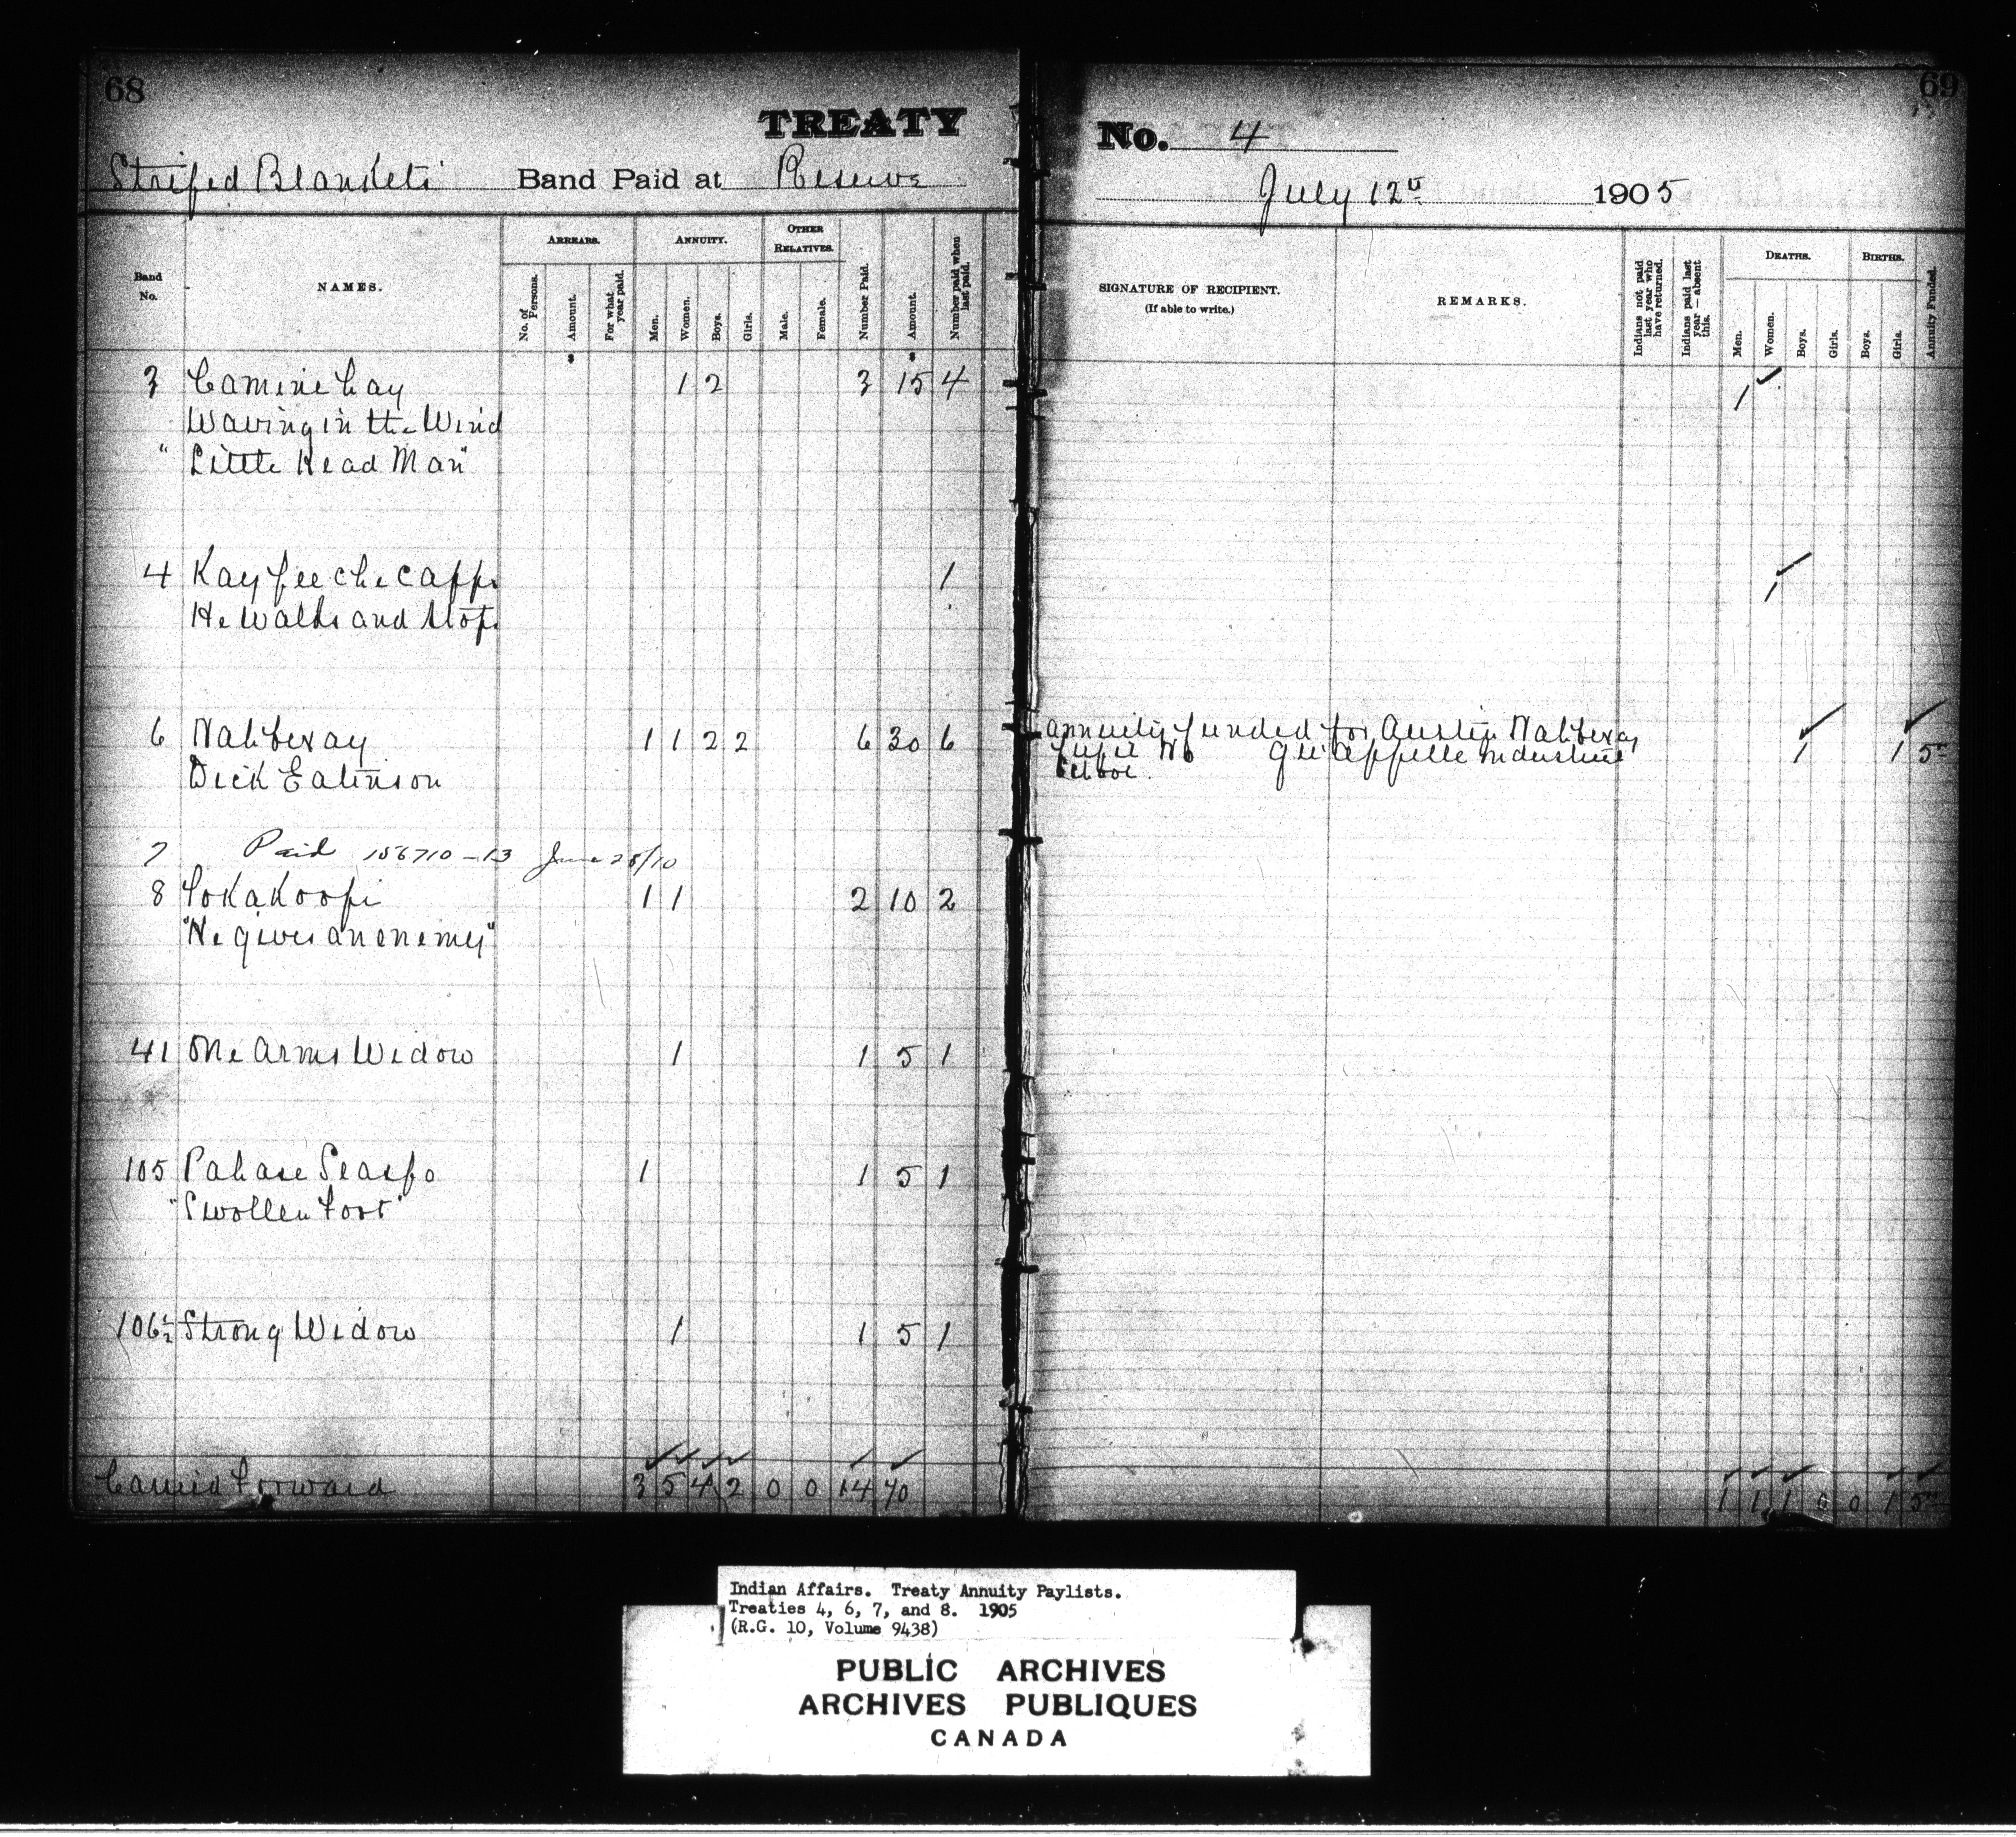 68
TREATY
Striped Blankets Band Paid at Reserve
Band No.
NAMES.
ARREARS.
No. of Persons.
Amount.
For what year paid.
ANNUITY.
Men.
Women.
Boys.
Girls.
OTHER RELATIVES.
Male.
Female.
Number Paid.
Amount.
Number paid when last paid.
3 1 2 3 15 4
Waving in the Wind
"Little Head Man"
4 1
He Walks and Stops
6 1 1 2 2 6 30 6
Dick
7 Paid 156710-13 June 28/10
8 1 1 2 10 2
"He gives an enemy"
41 One Arms Widow 1 1 5 1
105 1 1 5 1
"Swollen Foot"
106½ Strong Widow 1 1 5 1
Carried Forward 3 5 4 2 0 0 14 70
69
No. 4
July 12th 1905
SIGNATURE OF RECIPIENT.
(If able to write.)
REMARKS.
Indians not paid last year who have returned.
Indians paid last year — absent this.
DEATHS.
Men.
Women.
Boys.
Girls.
BIRTHS.
Boys.
Girls.
Annuity Funded.
1
1
Annuity funded for Austin 1 1 5
Pupil No Qu'Appelle Industrial
School.
1 1 1 0 0 1 5
Indian Affairs. Treaty Annuity Paylists.
Treaties 4, 6, 7, and 8. 1905
(R.G. 10, Volume 9438)
PUBLIC ARCHIVES
ARCHIVES PUBLIQUES
CANADA